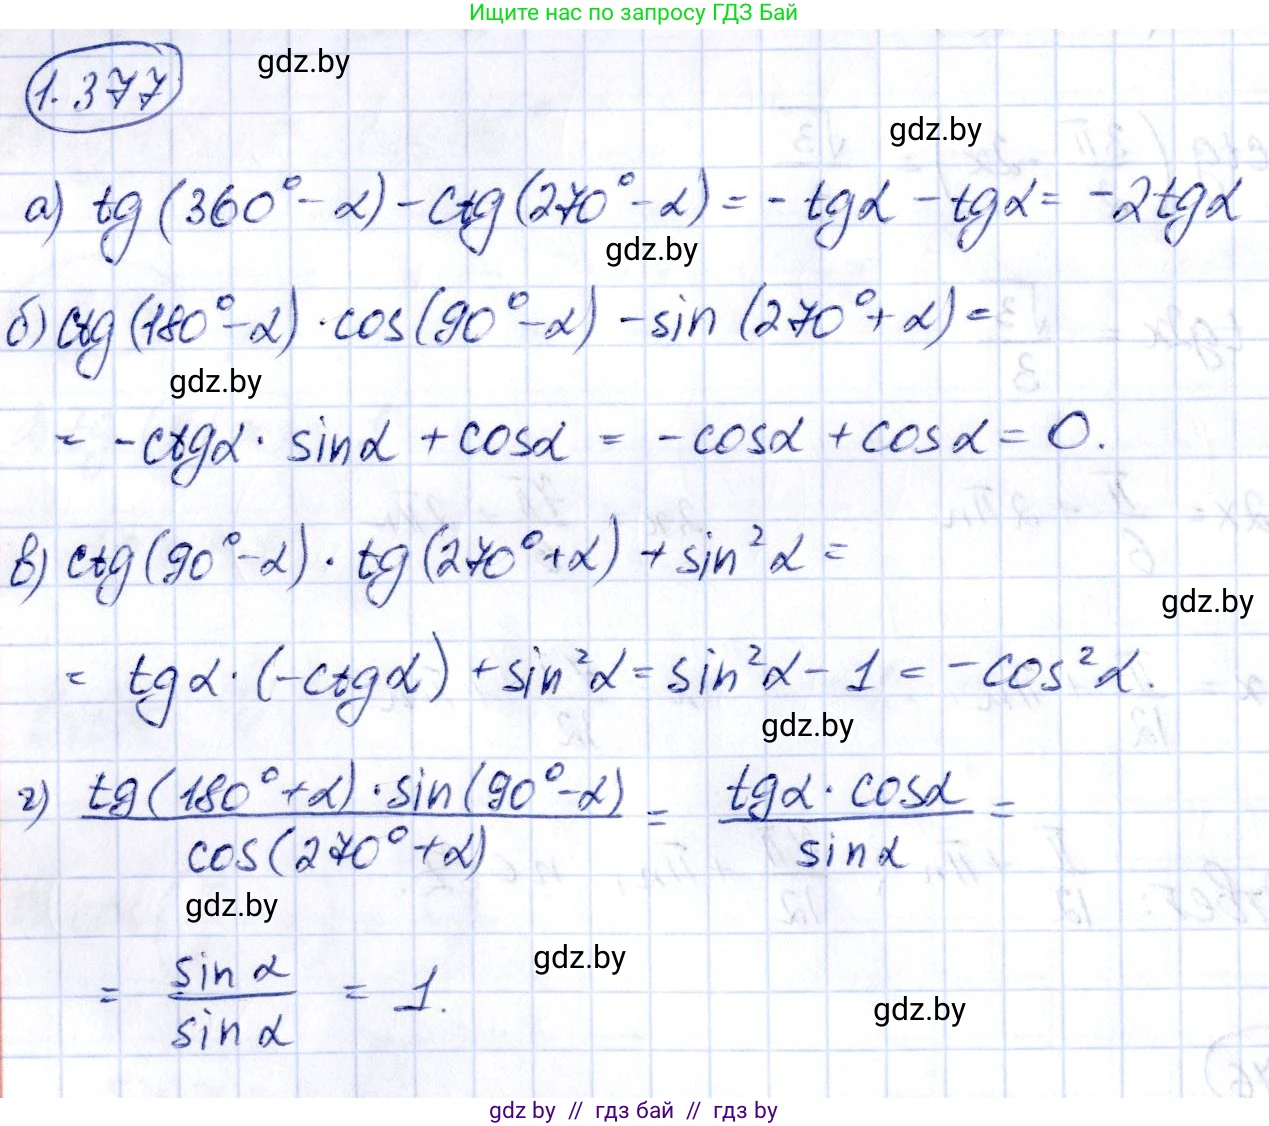 Ищите нас по запросу ГДЗ Бай
1.377
gdz.by
gdz.by
а) tg(360°-α) - ctg(270°-α) = - tgα - tgα = -2tgα
gdz.by
б) ctg(180°-α) · cos(90°-α) - sin(270°+α) =
gdz.by
= -ctgα · sinα + cosα = -cosα + cosα = 0.
в) ctg(90°-α) · tg(270°+α) + sin²α =
gdz.by
= tgα · (-ctgα) + sin²α = sin²α - 1 = -cos²α.
gdz.by
г) tg(180°+α) · sin(90°-α) / cos(270°+α) = tgα · cosα / sinα =
gdz.by
gdz.by
= sinα / sinα = 1.
gdz.by
gdz by // гдз бай // gdz by